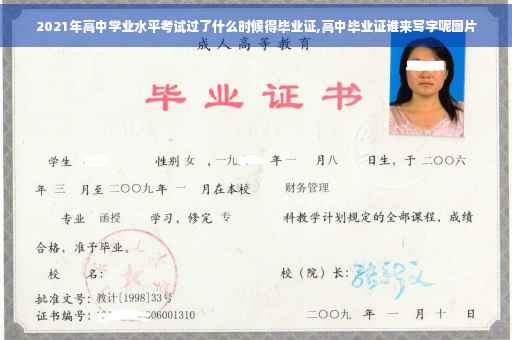 2021年高中学业水平考试过了什么时候得毕业证,高中毕业证谁来写字呢图片
成人高等教育
毕业证书
学生 性别 女 ,一九 年一 月八 日生,于二〇〇六
年 三 月至二〇〇九年 一 月在本校 财务管理
专业 函授 学习,修完 专 科教学计划规定的全部课程,成绩
合格,准予毕业。
校 名: 校（院）长:
批准文号:教计[1998]33号
证书编号: 06001310 二〇〇九 年 一 月 十 日